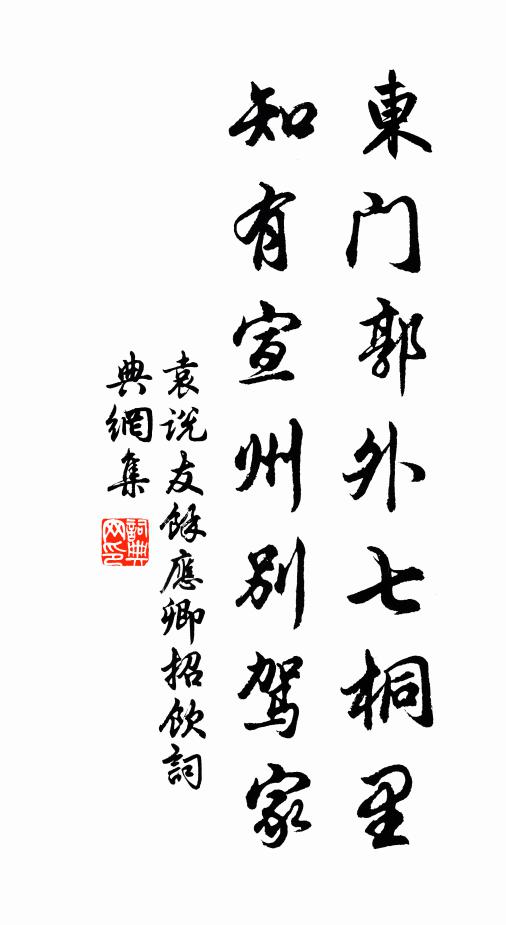 東门郭外七桐里
知有宣州别駕家
袁说友馀應卿招飲詞
典網集
詞典网印